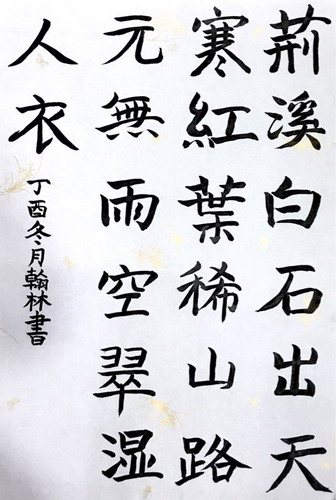 荊溪白石出天
寒紅葉稀山路
元無雨空翠湿
人衣
丁酉冬月翰林書